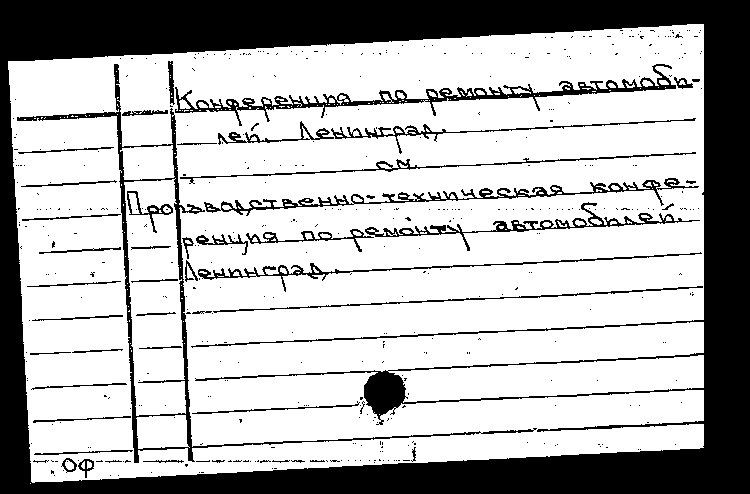 Конференция по ремонту автомоби-
лей. Ленинград.
см.
Производственно-техническая конфе-
ренция по ремонту автомобилей.
Ленинград.
ОФ